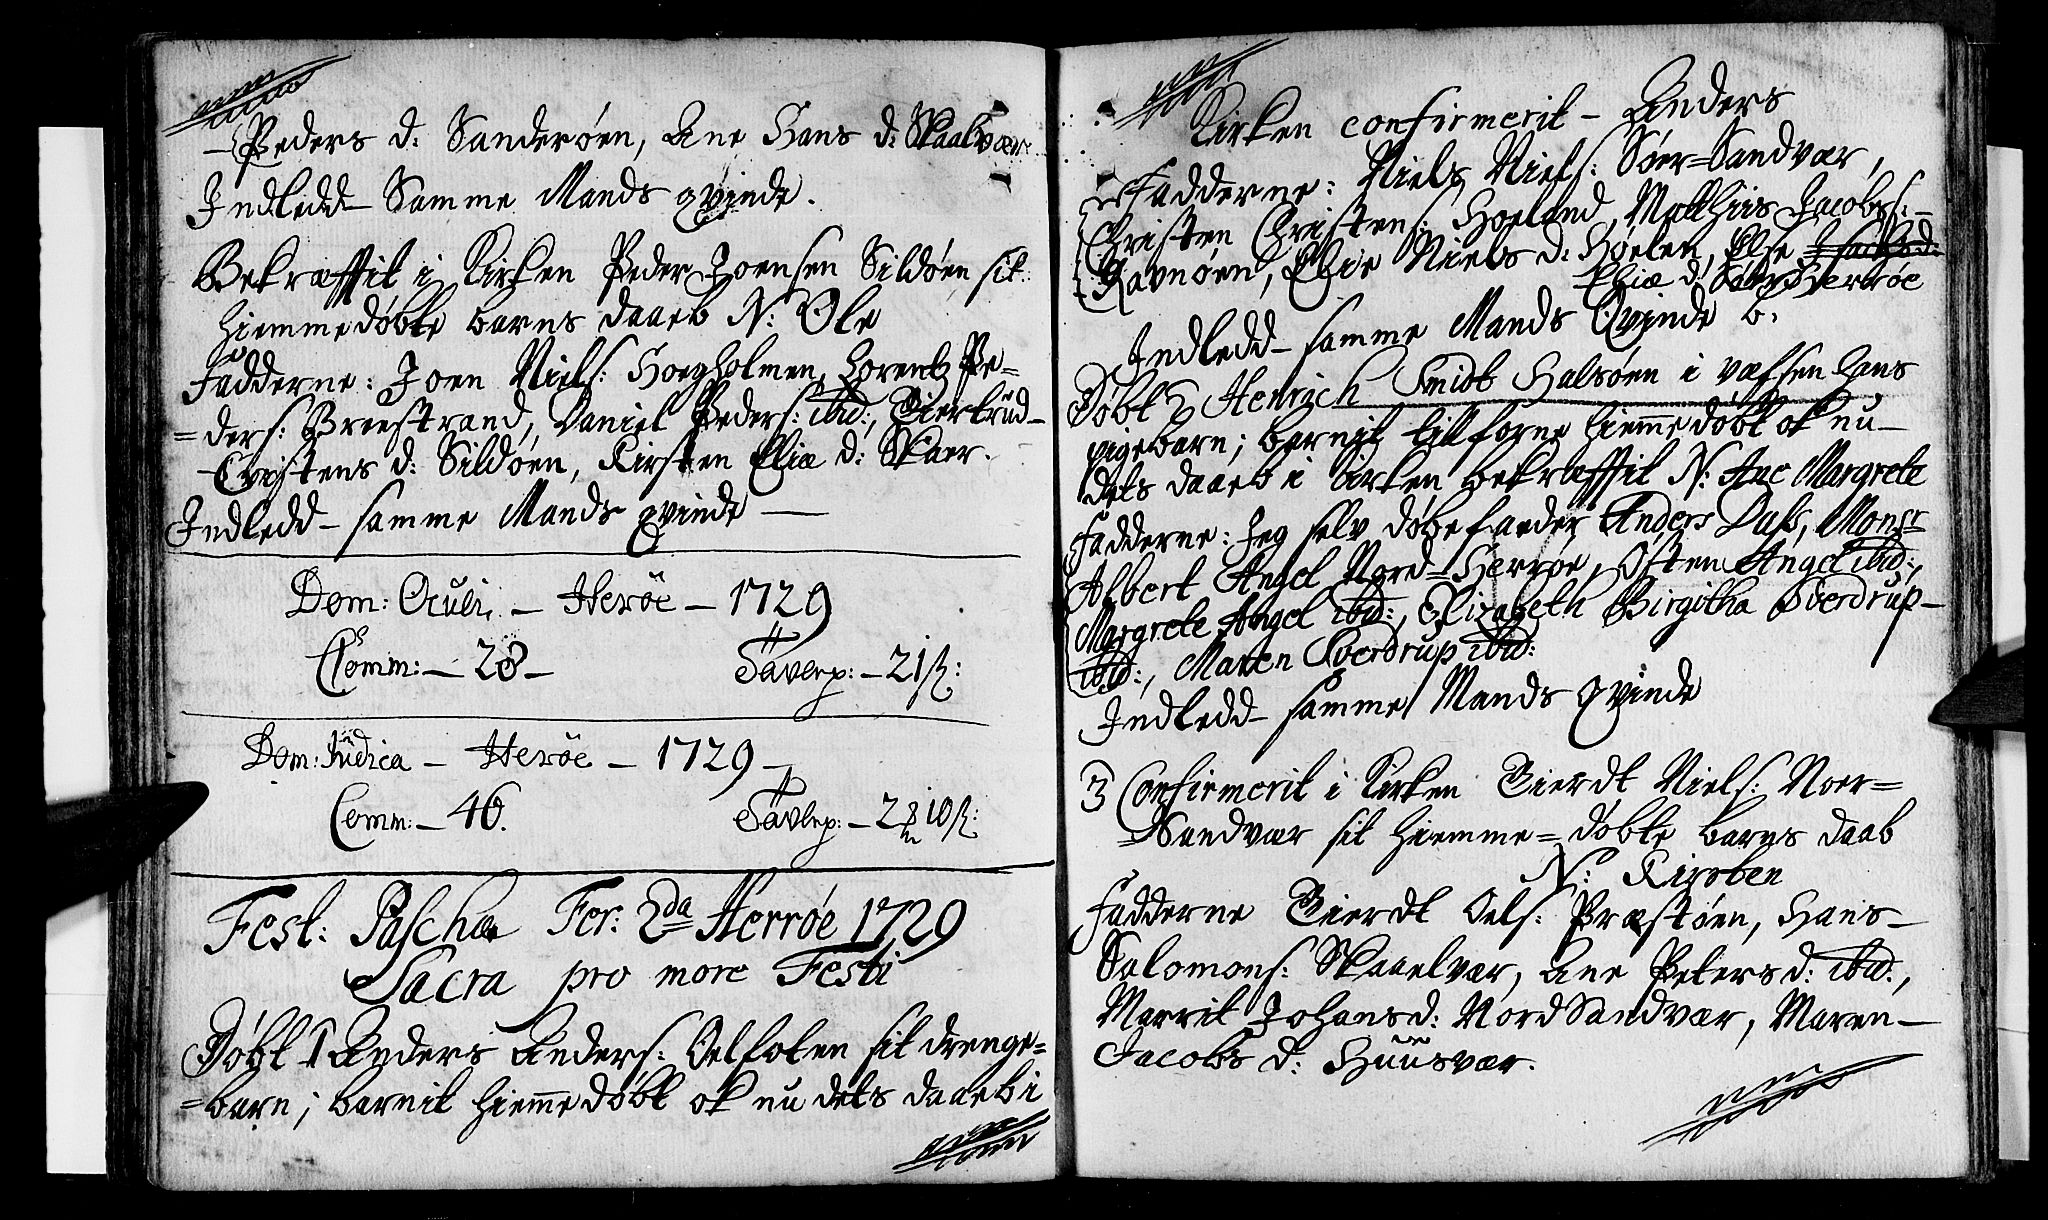 Peders d: Sanderöen, Ane Hans d: Skaalvær
Indledd – Samme Mands qvinde.
Bekræfftit i Kirken Peder Joensen Sildöen sit
hiemmedöbte barns daaeb N: Ole
Fadderne: Joen Niels: Hoegholmen, Lorentz Pe=
=ders: Breestrand, Daniel Peders: ibid:, Giertrud
Christens d: Sildöen, Kirsten Eliæ d: Skaer.
Indledd – samme Mands qvinde —
Dom: Oculi – Heröe – 1729
Comm: – 28 – Tavlep: – 21 ß:
Dom: Judica – Heröe – 1729 –
Comm: – 46. Tavlep: – 2 10 ß:
Fest: Paschæ Fer: 2da Herröe 1729
Sacra pro more Festi
Döbt 1 Anders Anders: Oelfoten sit drenge=
=barn; barnit hiemme döbt ok nu dets daaeb i
Kirken confirmerit – Anders
Fadderne: Niels Niels: Söer=Sandvær,
Christen Christens: Hoeland, Matthias Jacobs: –
Ravnöen, Elsie Niels d: Höelen, Else Jacobs d:
Eliæ d: Söer Herröe
Indledd – samme Mands Qvinde
Döbt 2 Henrich Smidt Halsöen i Vefsen hans
pigebarn; barnit tillforne hiemmedöbt ok nu –
dets daaeb i Kirken bekræfftit N: Ane Margrete
Fadderne: Jeg selv döbefaeder Anders Dass, Monsr
Albert Angel Nord=Herröe, Osten Angel ibid:,
Margrete Angel ibid:, Elizabeth Birgitha Sverdrup –
ibid:, Maren Sverdrup ibid:
Indledd – samme Mands qvinde
3 Confirmerit i Kirken Gierdt Niels: Noer=
=Sandvær sit hiemme=döbte barns daab
N: Kirsten
Fadderne Gierdt Oels: Præstöen, Hans –
Salomons: Skaaelvær, Ane Peters d: ibid:,
Marrit Johans d: Nord Sandvær, Maren –
Jacobs d: Huusvær.